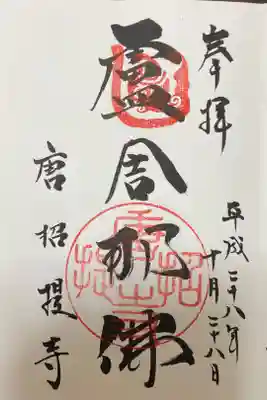 奉拝
平成二十八年
十月二十八日
盧舎那佛
唐招提寺